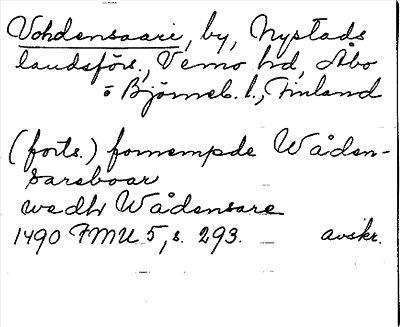 Vohdensaari, by, Nystads
landsförs., Vemo hd, Åbo
o Björneb. l., Finland
(forts.) fornempde Wåden-
sareboar
wedh Wådensare
1490 FMU 5, s. 293. avskr.